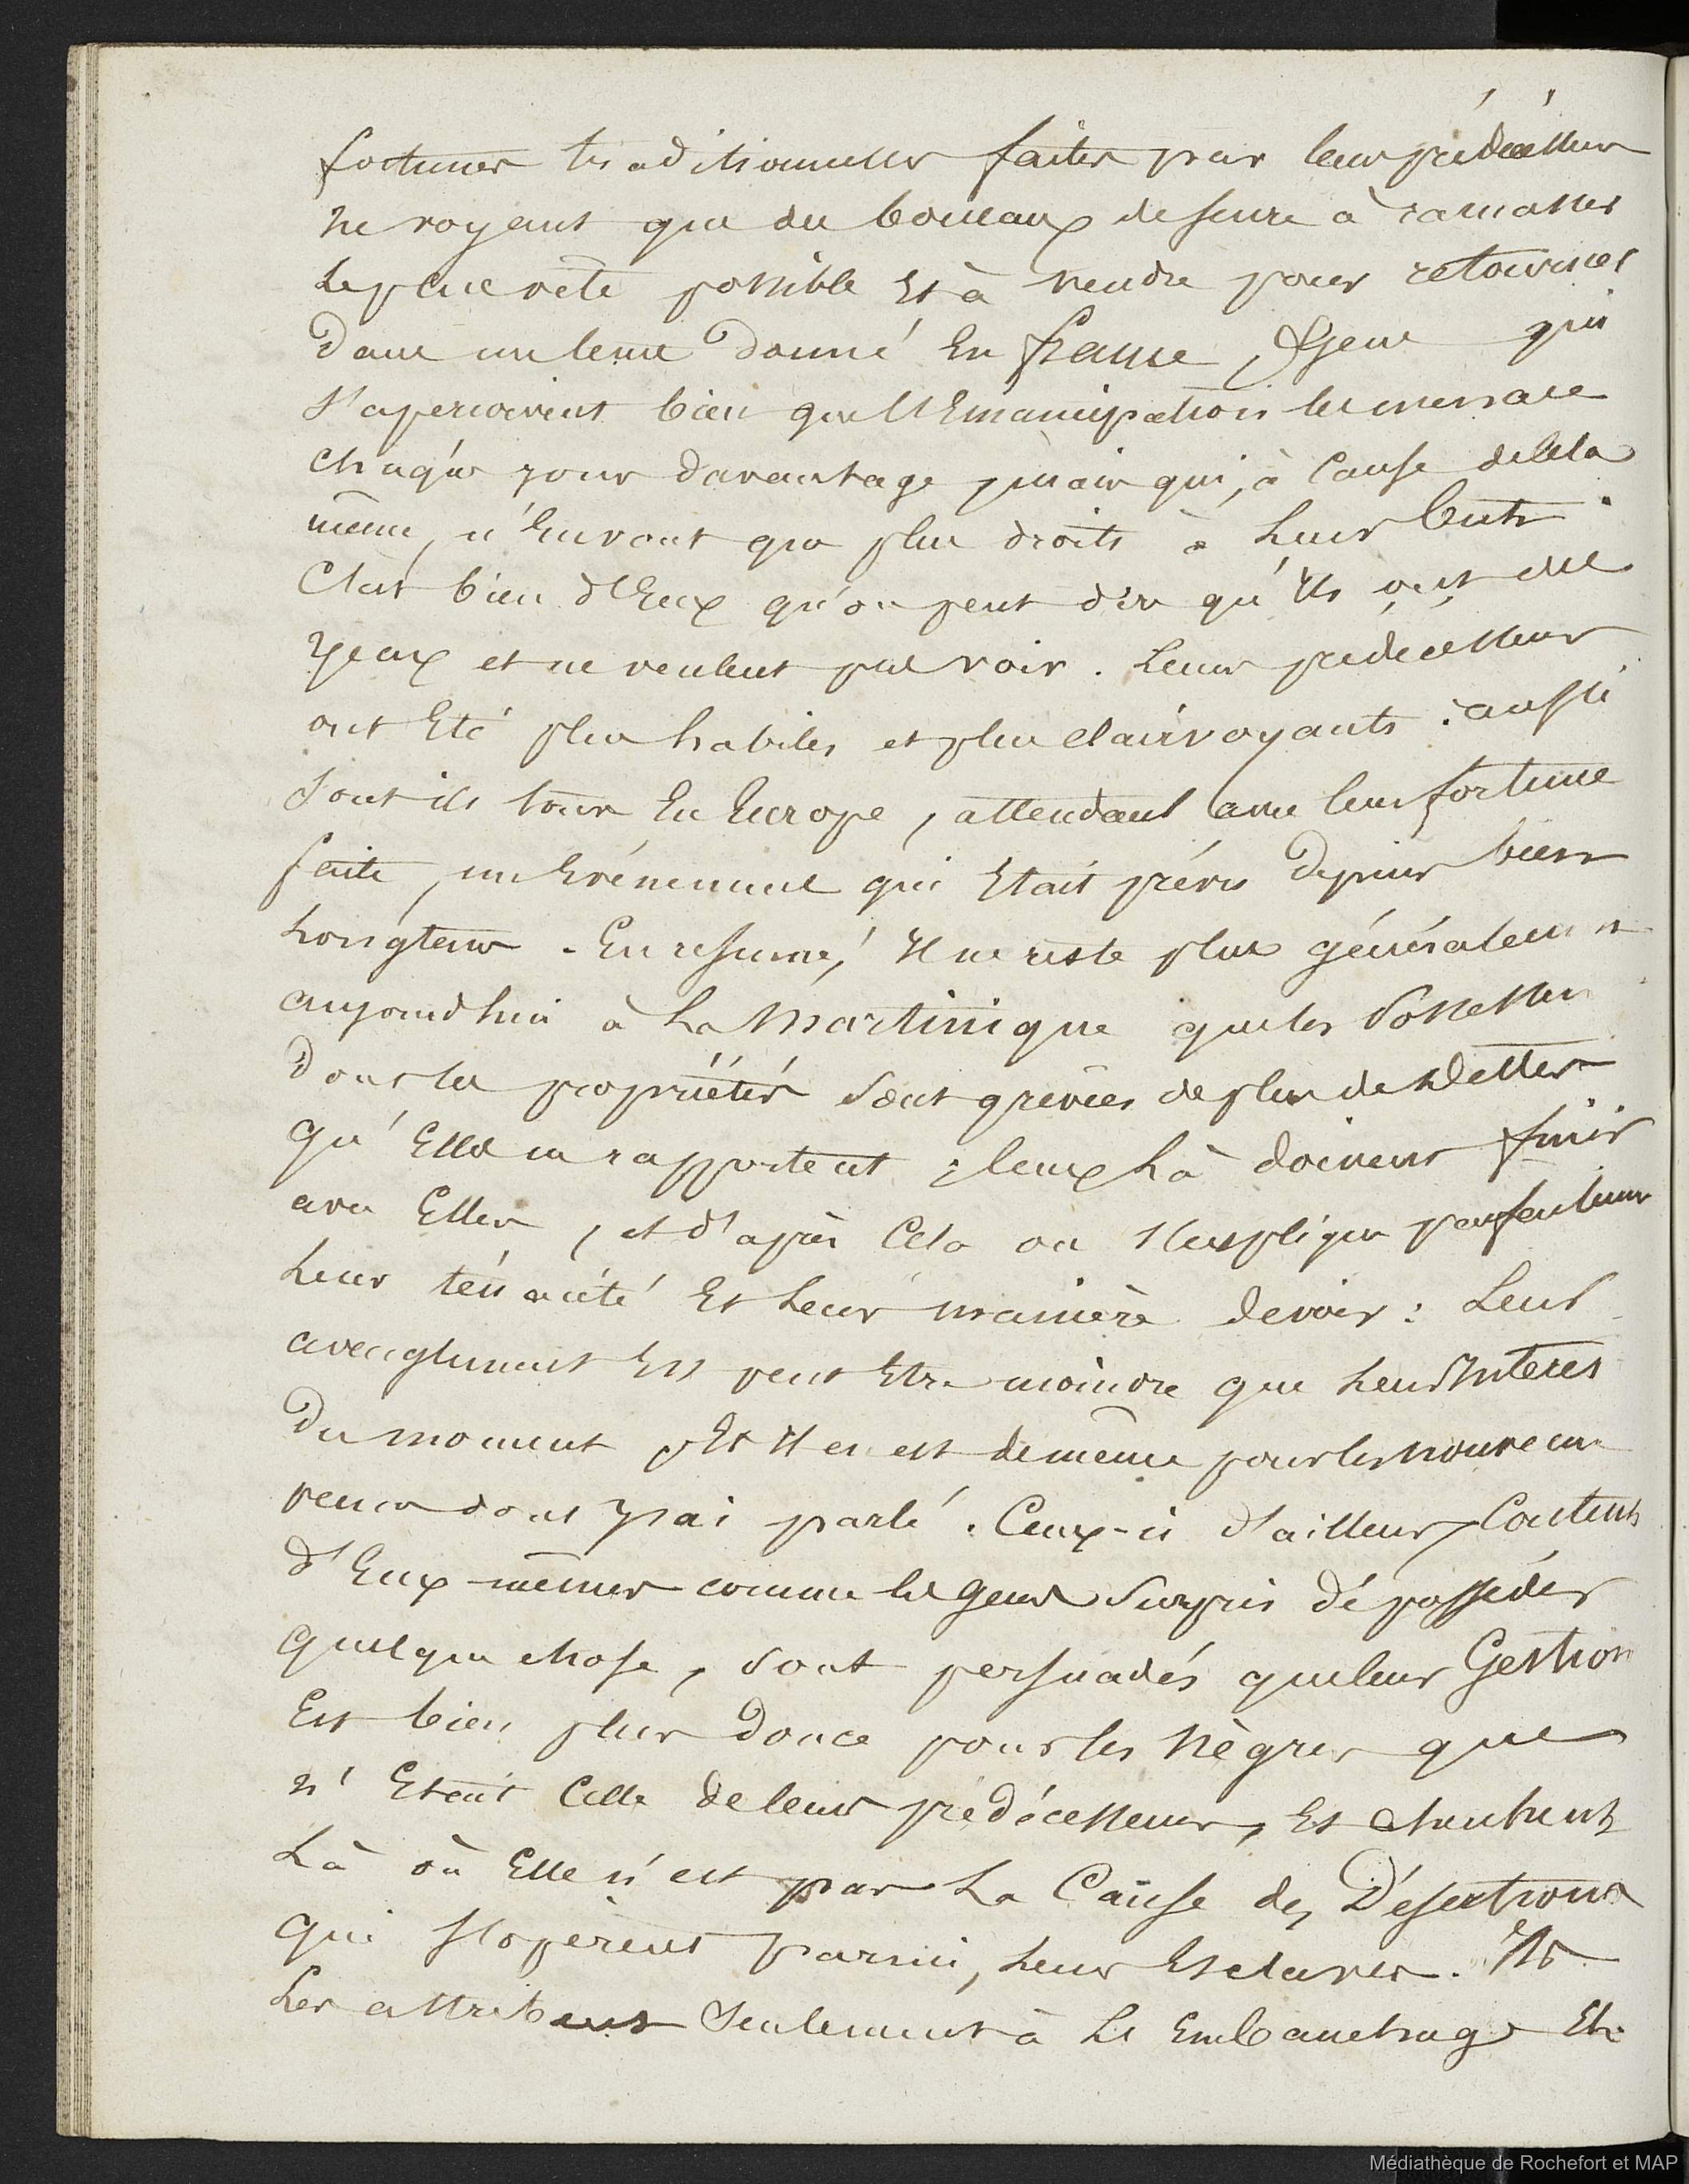 fortunes traditionnelles faites par leurs prédécesseurs
ne voyent que du boucaux de sucre à ramasser
le plus vite possible Et à vendre pour retourner
Dans un tems Donné En france, Gens qui
s'aperçoivent bien que l'Emancipation les menace
chaque jour davantage, mais qui, à Cause de cela
même, n'En vont que plus droits à Leur but.
C'est bien d'Eux qu'on peut dire qu'Ils ont des
yeux et ne veulent pas voir. Leurs prédécesseurs
ont Eté plus habiles et plus clairvoyants : aussi
sont ils tous En Europe, attendant avec leur fortune
faite, un Evénement qui Etait prévu Depuis bien
Longtems. En resumé, Il ne reste plus généralement
aujourd'hui à La Martinique que les Possesseurs
Dont les propriétés sont grévées de plus de Dettes
qu'Elles ne rapportent ; Ceux Là doivent finir
avec Elles, et d'après Cela on s'explique parfaitement
Leur ténacité Et Leur manière de voir : Leur
aveuglement Est peut Etre moindre que Leur Interes
Du moment, Et Il en est de même pour les nouveaux
venus dont J'ai parlé. Ceux-ci d'ailleurs, Contents
d'Eux-mêmes comme les Gens Surpris de posséder
quelque chose, sont persuadés que leur Gestion
Est bien plus Douce pour les Nègres que
n'Etait Celle de leurs prédécesseurs, Et cherchent
Là où Elle n'est pas La Cause des Désertions
qui s'opèrent parmi, Leurs Esclaves. Ils
Les attribuent Seulement à L'Embauchage Et